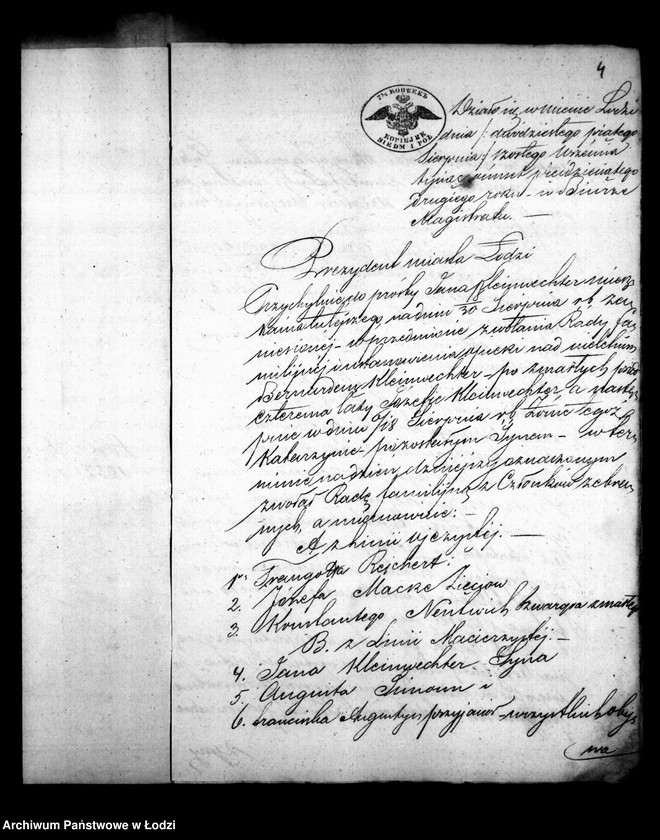 4
7½ КОПѢЕКЪ
KOPIEJEK
SIEDM I PÓŁ
Działo się w mieście Łodzi
dnia / dwudziestego piątego
Sierpnia / szóstego Września
tysiąc ośmset pięćdziesiątego
drugiego roku - w Biurze
Magistratu. —
Prezydent miasta Łodzi
Przychylając się do prośby Jana Kleinwechter miesz
kańca tutejszego na dniu /30 Sierpnia r b
niesionej - w przedmiocie zwołania Rady fa
milijnej i ustanowienia opieki nad nieletnim
Bernardem Kleinwechter - po zmarłych przed
czterema laty Józefie Kleinwechter a nastę
pnie w dniu 6/18 Sierpnia r b żonie tegoż
Katarzynie - pozostałym Synem - w ter
minie na dzień dzisiejszy oznaczonym
zwołał Radę familijną z Członków zebra
nych, a mianowicie: -
A z linii ojczystej. —
1. Rejchert.
2. Józefa Macke Zięciów
3. Konstantego Nentwich Szwagra zmarłego
B. z linii Macierzystej. -
4. Jana Kleinwechter Syna
5. Augusta Simon i
6. Franciszka Augustyn przyjaciół - wszystkich oby
wa
Archiwum Państwowe w Łodzi